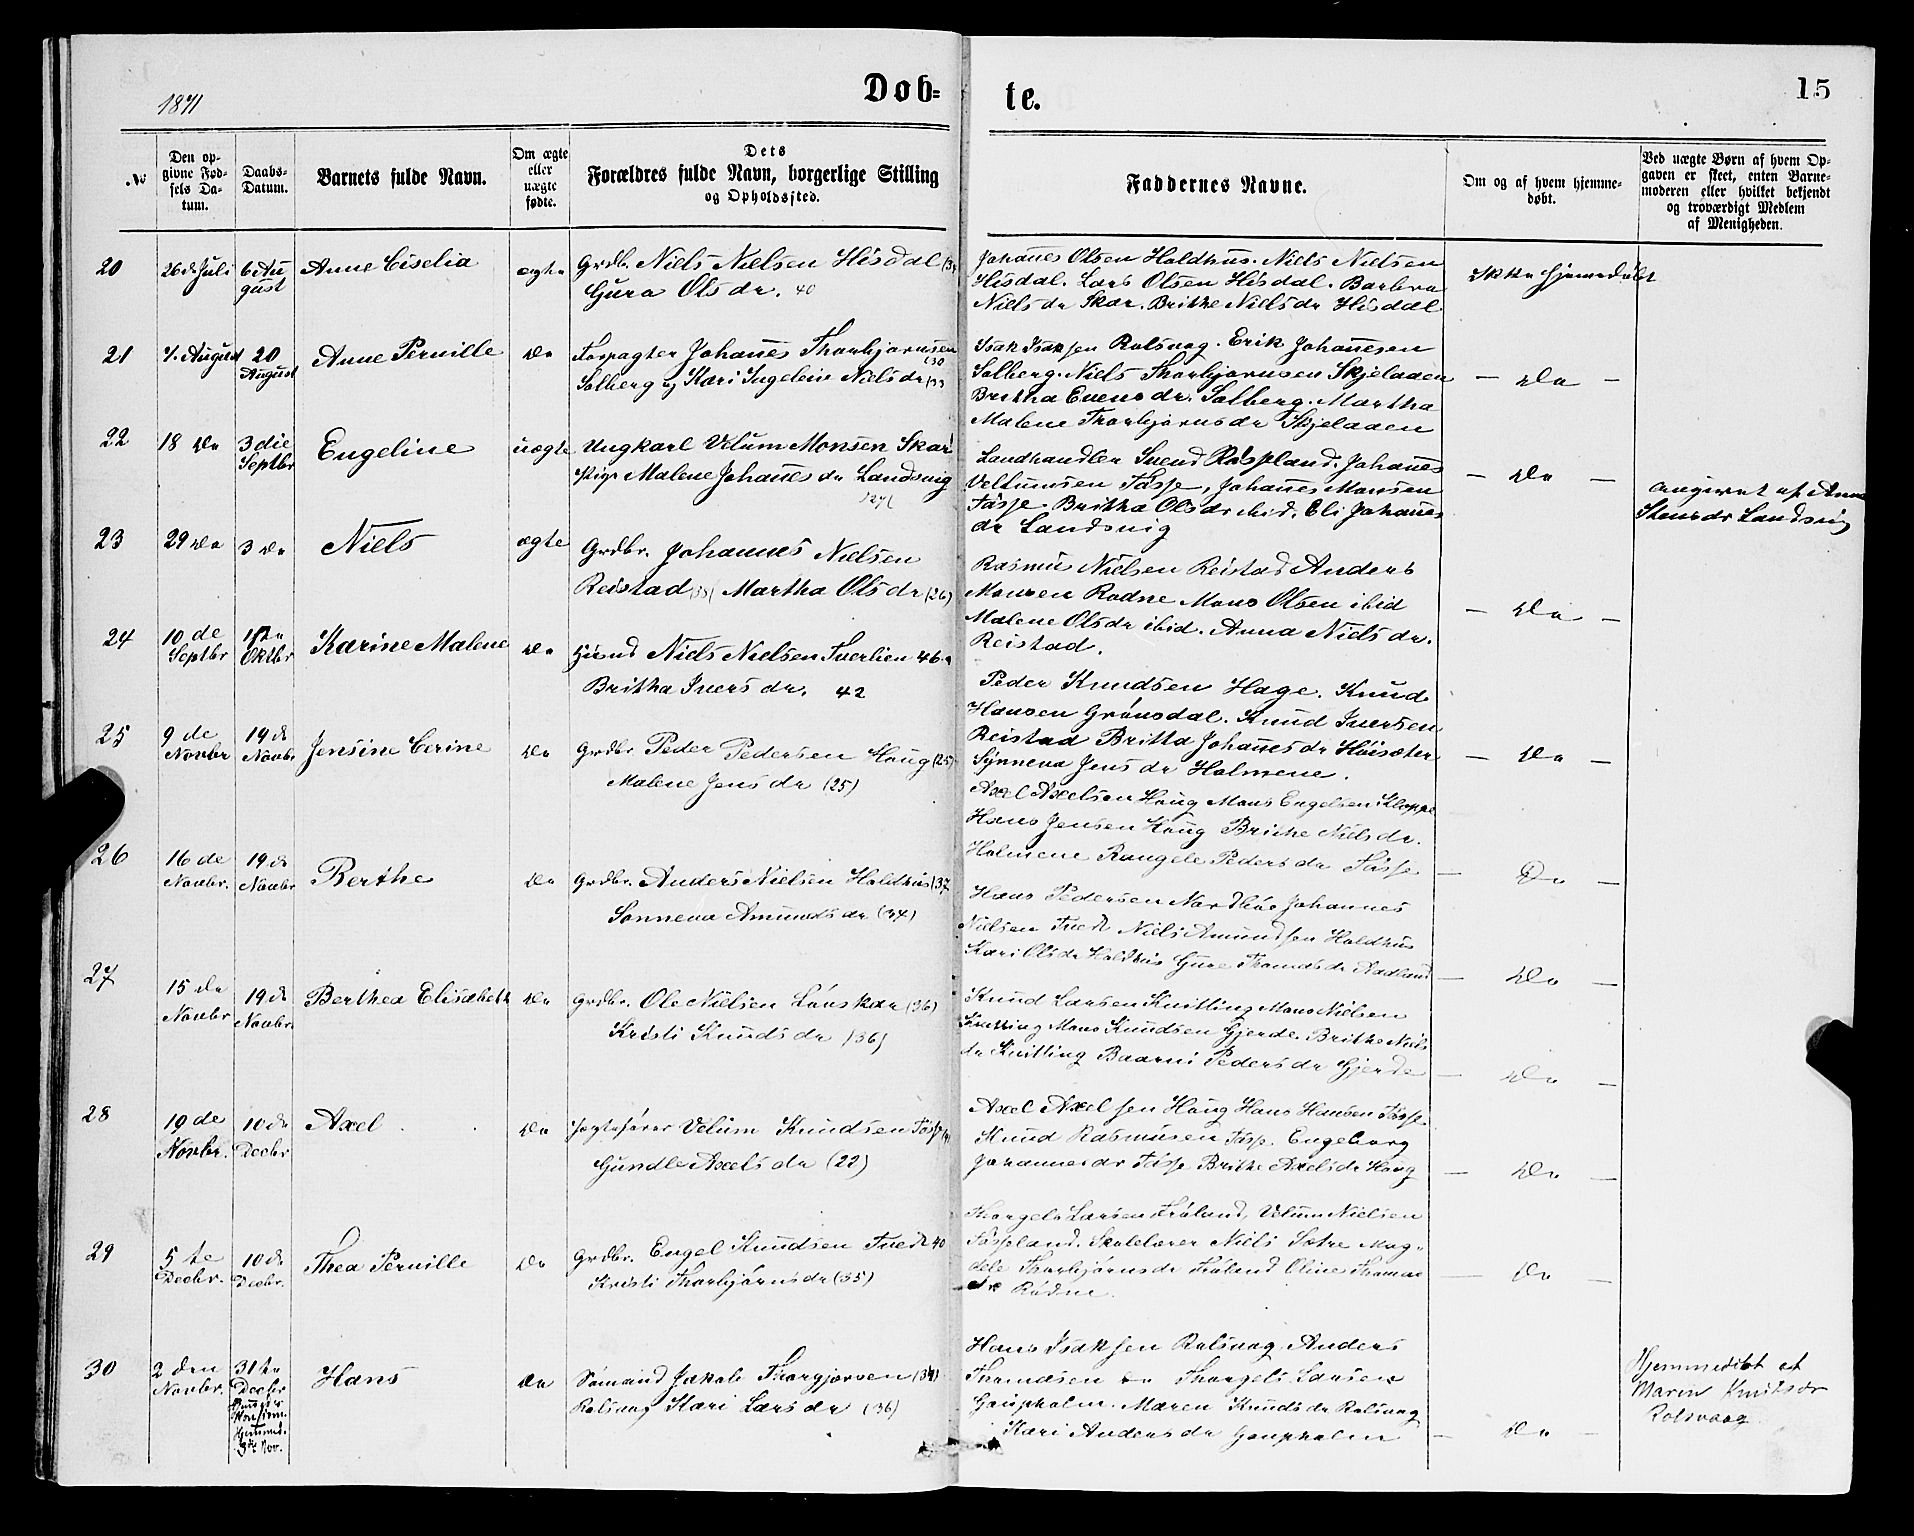 1871
Døb-
te.
15
No
Den opgivne Fødsels Datum.
Daabs-Datum.
Barnets fulde Navn.
Om ægte eller uægte fødte.
Dets
Forældres fulde Navn, borgerlige Stilling
og Opholdssted.
Faddernes Navne.
Om og af hvem hjemmedøbt.
Ved uægte Børn af hvem Opgaven er skeet, enten Barnemoderen eller hvilket bekjendt og troværdigt Medlem af Menigheden.
20
26 de Juli
6 August
Anne Ciselia
ægte
Grdbr. Niels Nielsen Hisdal
Gura Olsdr. 40
Johanes Olsen Holdhus. Niels Nielsen
Hisdal. Lars Olsen Hisdal. Barbra
Nielsdr Skar. Brithe Nielsdr Hisdal
Ikke hjemedøbt
21
7. August
20 August
Anne Pernille
Do
Forpagter Johanes Thorbjørnsen
Solberg og Kari Ingeleine Nielsdr
Isak Isaksen Rolsvog. Erik Johanesen
Solberg. Niels Thorbjørnsen Skjelaaen
Britha Evensdr. Solberg. Martha
Malene Thorbjørnsdr Skjelaaen
— Do —
22
18 Do
3die Septbr
Engeline
uægte
Ungkarl Velum Monsen Skar
Pige Malene Johanesdr Landsvig
Landhandler Svend Røspland. Johanes
Veltumsen Tøsse, Johanes Monsen
Tøsse Britha Olsdr ibid. Eli Johanes
dr Landsvig
— Do —
angivet af Anne
Stensdr Landsvig
23
29 Do
3 Do
Niels
ægte
Grdbr. Johannes Nielsen
Reistad Martha Olsdr (26)
Rasmus Nielsen Reistad Anders
Monsen Rødne Mons Olsen ibid
Malene Olsdr ibid. Anna Nielsdr.
Reistad.
— Do —
24
10 de Septbr
Oktbr
Karine Malene
Do
Niels Nielsen Tverlien 46
Britha Iversdr. 42
Peder Knudsen Hage. Knud
Hansen Grønsdal. Knud Iversen
Reistad Britta Johanesdr Høisæter
Synneva Jensdr Holmene.
— Do —
25
9 de Novbr
19 de Novbr
Jensine Cerine
Do
Grdbr Peder Pedersen Haug (25)
Malene Jensdr (25)
Axel Axelsen Haug Mons Engelsen Kleppe
Hans Jensen Haug Brithe Nielsdr.
Holmene Rangele Pedersdr Tøsse
— Do —
26
16 de Novbr.
19 de Novbr
Berthe
Do
Grdbr. Anders Nielsen Holdhus (37
Sønneva Amundsdr (34)
Hans Pedersen Nordbøe Johannes
Nielsen Tvedt Niels Amundsen Holdhus
Kari Olsdr Holdhus Gure Thomasdr Aadland
— Do —
27
15 de Novbr
19 de Novbr
Berthea Elisabeth
Do
Grdbr. Ole Nielsen Lønskar (36)
Kristi Knudsdr (36)
Knud Larsen Kvitling Mons Nielsen
Kvitling Mons Knudsen Gjerde. Brithe Niels
dr Kvitling Baarni Pedersdr Gjerde
— Do —
28
19 de Novbr.
10 de Decbr
Axel
Do
Jægtefører Velum Knudsen Tøsse
Gundle Axelsdr (22)
Axel Axelsen Haug Hans Hansen Tøsse
Knud Rasmusen Tøsse. Engeborg
Johannesdr Tøsse Brithe Axelsdr Haug
— Do —
29
5 te Decbr.
10 de Decbr.
Thea Pernille
Do
Grdbr. Engel Knudsen Tvedt 40
Kristi Thorbjørnsdr (35)
Thorgels Larsen Frøland, Velum Nielsen
Tøsseland. Skolelærer Niels Sætre Mag-
dele Thorbjørnsdr Frøland Oline Thomas
dr Rødne.
— Do —
30
2 den Novbr.
31 te Decbr
Hans
Do
Sømand Jakob Thorgjørsen (34)
Rolsvog Kari Larsdr (36)
Hans Isaksen Rolsvog Anders
Thomasen Do Thorgels Larsen
Goupholm. Maren Knudsdr Rolsvog
Kari Andersdr Goupholm
— Do —
Hjemmedøbt af
Maren Knutsdr
Rolsvaag